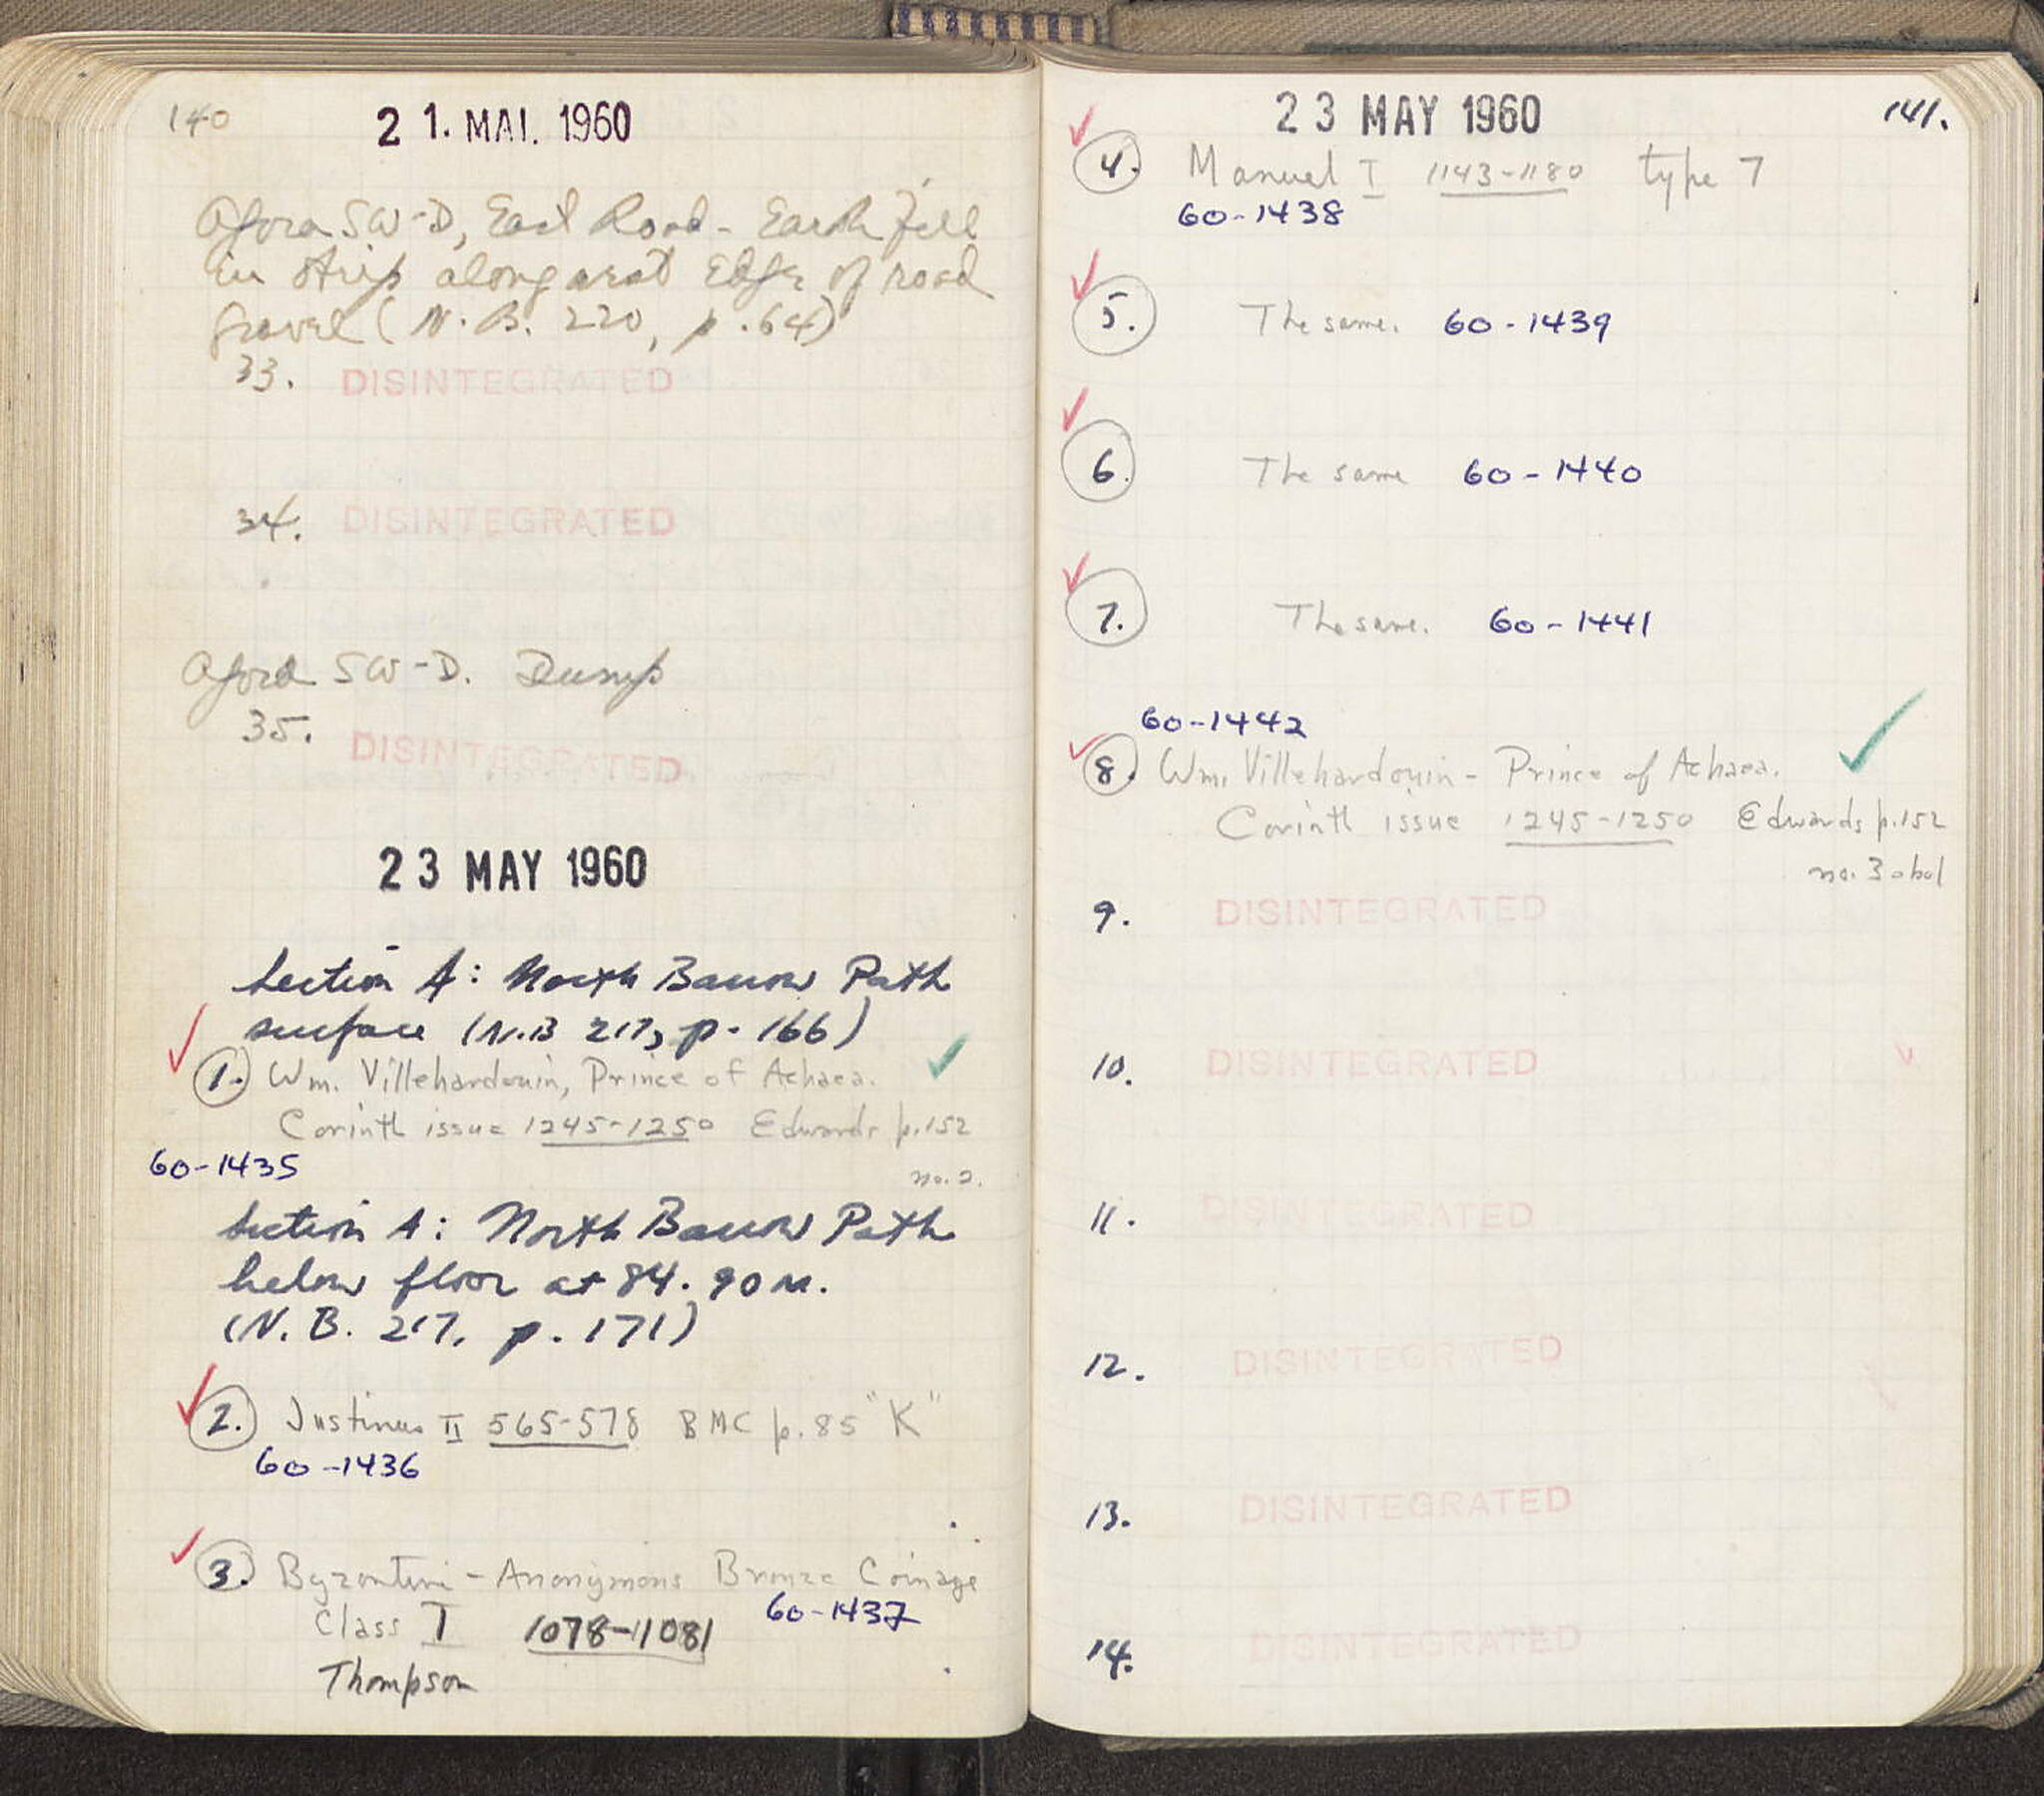 140
21. MAI. 1960
Agora SW-D, East Road - Earth fill
in strip along west Edge of road
gravel (N.B. 220, p. 64)
33. DISINTEGRATED
34. DISINTEGRATED
Agora SW-D. Dump
35. DISINTEGRATED
23 MAY 1960
Section A: North Baulk Path
surface (N.B 217, p. 166)
1. Wm. Villehardouin, Prince of Achaea.
Corinth issue 1245-1250 Edwards p.152
60-1435 no. 2.
Section A: North Baulk Path
below floor at 84.90 m.
(N.B. 217, p. 171)
2. Justinus II 565-578 BMC p.85 "K"
60-1436
3. Byzantine - Anonymous Bronze Coinage
Class I 1078-1081 60-1437
Thompson
23 MAY 1960 141.
4. Manuel I 1143-1180 type 7
60-1438
5. The same. 60-1439
6. The same 60-1440
7. The same. 60-1441
60-1442
8. Wm. Villehardouin - Prince of Achaea.
Corinth issue 1245-1250 Edwards p.152
no. 3 obol
9. DISINTEGRATED
10. DISINTEGRATED
11. DISINTEGRATED
12. DISINTEGRATED
13. DISINTEGRATED
14. DISINTEGRATED